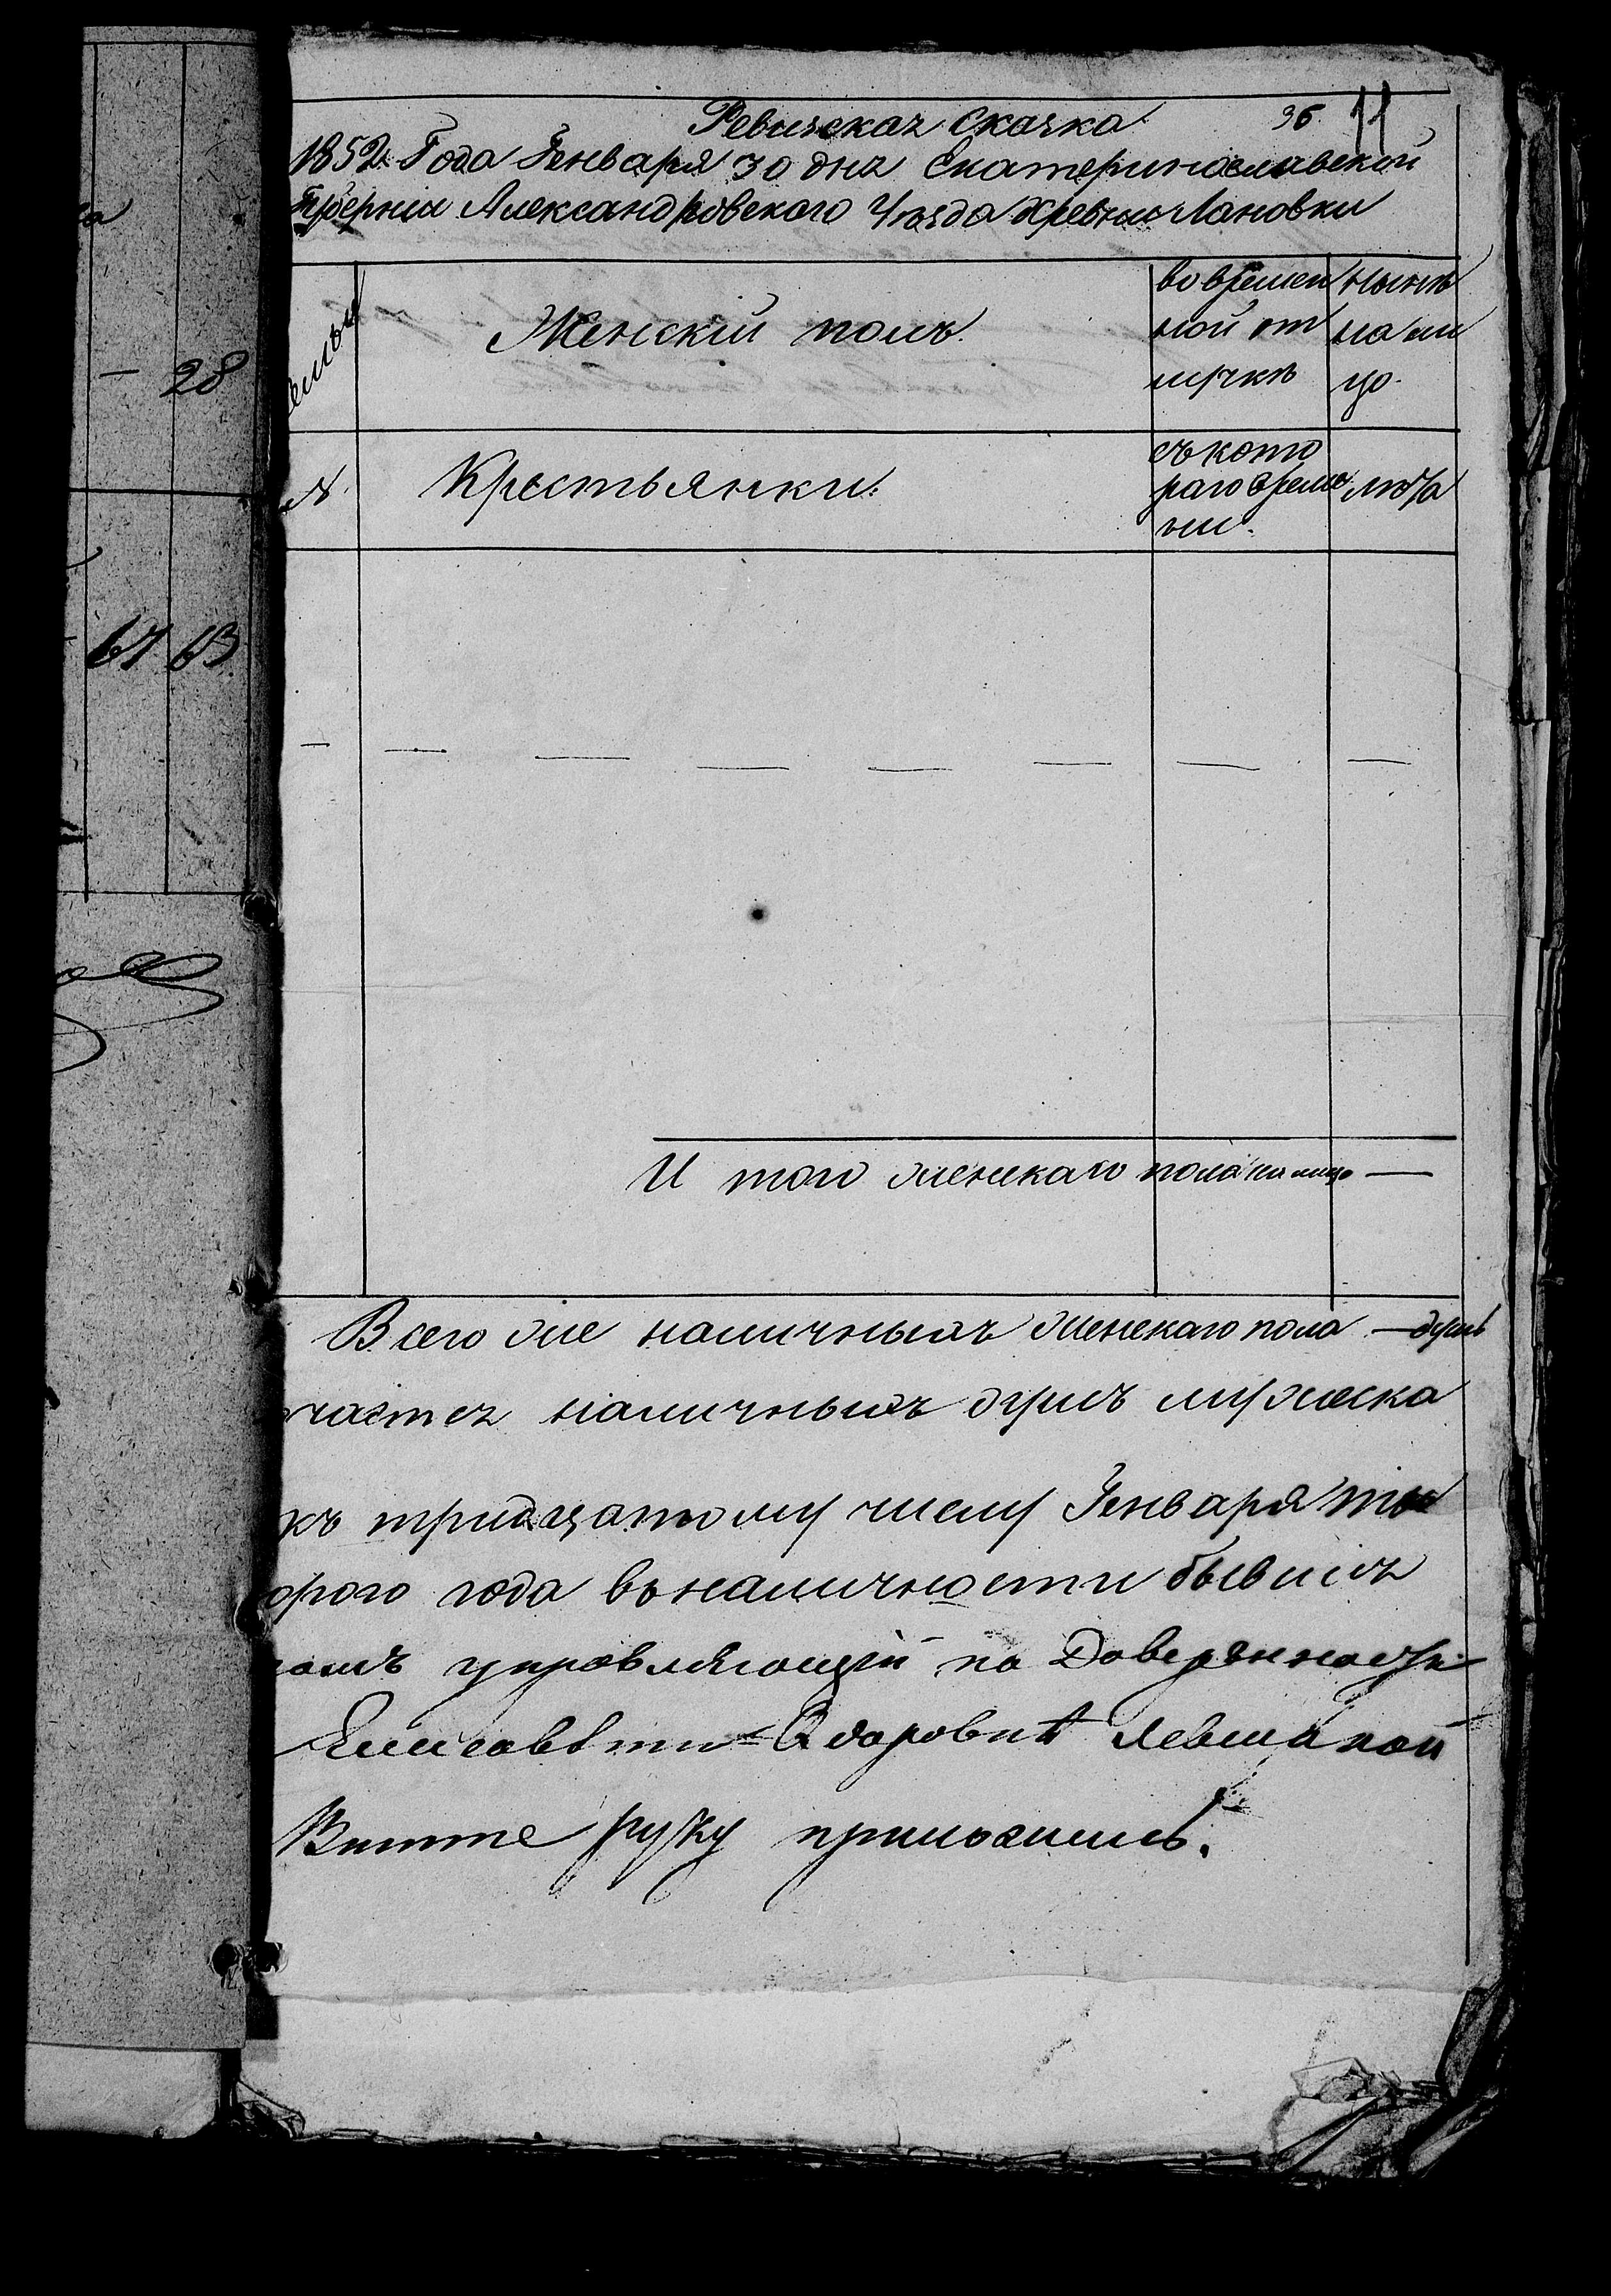 Ревизская Сказка
36 11
1852 Года Генваря 30 дня Екатеринославской
Губерніи Александровского Уѣзда деревни Лановки
Женскій полъ.
во времен
ной от
лучкѣ
нынѣ
на ли
цо.
№
Крестьянки.
съ кото
раго време
ни.
лѣта
И того женскаго пола на лицо —
Всего же наличныхъ женскаго пола — душъ
наличныхъ душъ мужеска
къ тридцатому числу Генваря тыс
орого года въ наличности бывших
управляющій по Доверенности
Елисавѣты Ѳдоровнѣ Левшиной
Витте руку приложилъ.
— 28
67 63